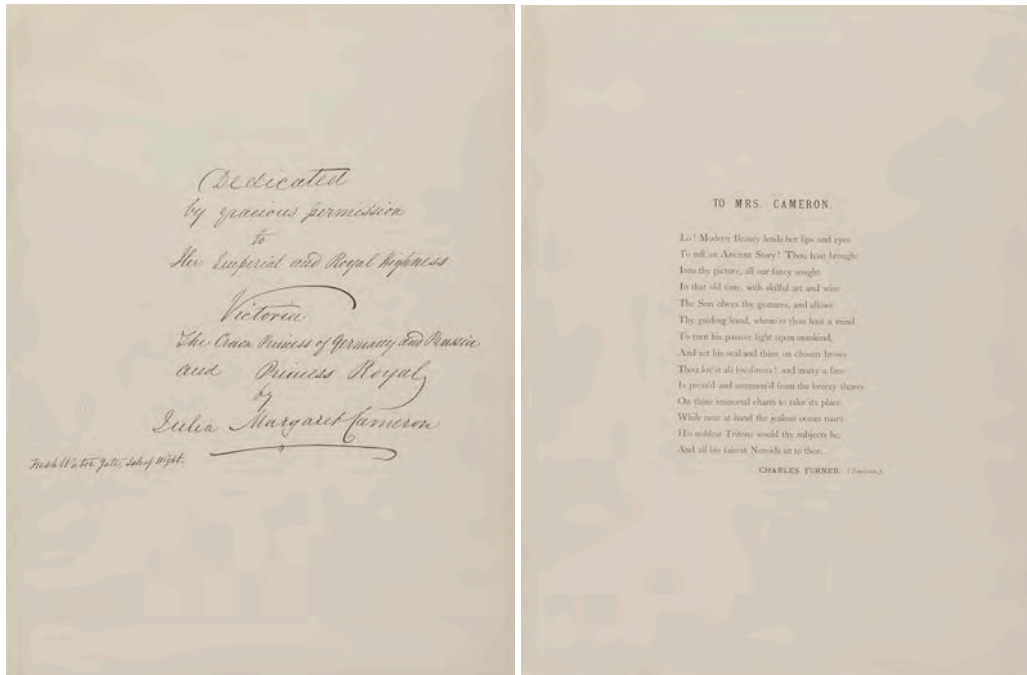 Dedicated
by gracious permission
to
Her Imperial and Royal Highness
Victoria
The Crown Princess of Germany and Prussia
and Princess Royal
by
Julia Margaret Cameron
Fresh Water Gate, Isle of Wight.
TO MRS. CAMERON.
Lo! Modern Beauty lends her lips and eyes
To tell an Ancient Story! Thou hast brought
Into thy picture, all our fancy sought
In that old time, with skilful art and wise
The Sun obeys thy gestures, and allows
Thy guiding hand, whene'er thou hast a mind
To turn his passive light upon mankind,
And set his seal and thine on chosen brows
Thou lov'st all loveliness! and many a face
Is press'd and summon'd from the breezy shores
On thine immortal charts to take its place
While near at hand the jealous ocean roars
His noblest Tritons would thy subjects be,
And all his fairest Nereids sit to thee.
CHARLES TURNER.